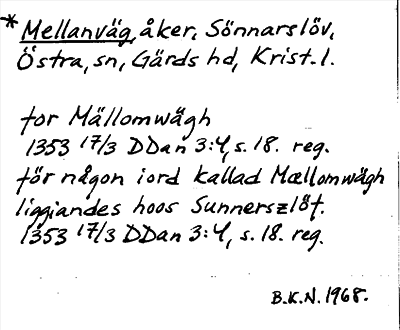 *Mellanväg, åker, Sönnarslöv,
Östra, sn, Gärds hd, Krist. l.
for Mällomwägh
1353 17/3 DDan 3:4, s. 18. reg.
för någon iord kallad Mællomwägh
liggiandes hoos Sunnerszlöf.
1353 17/3 DDan 3:4, s. 18. reg.
B.K.N. 1968.